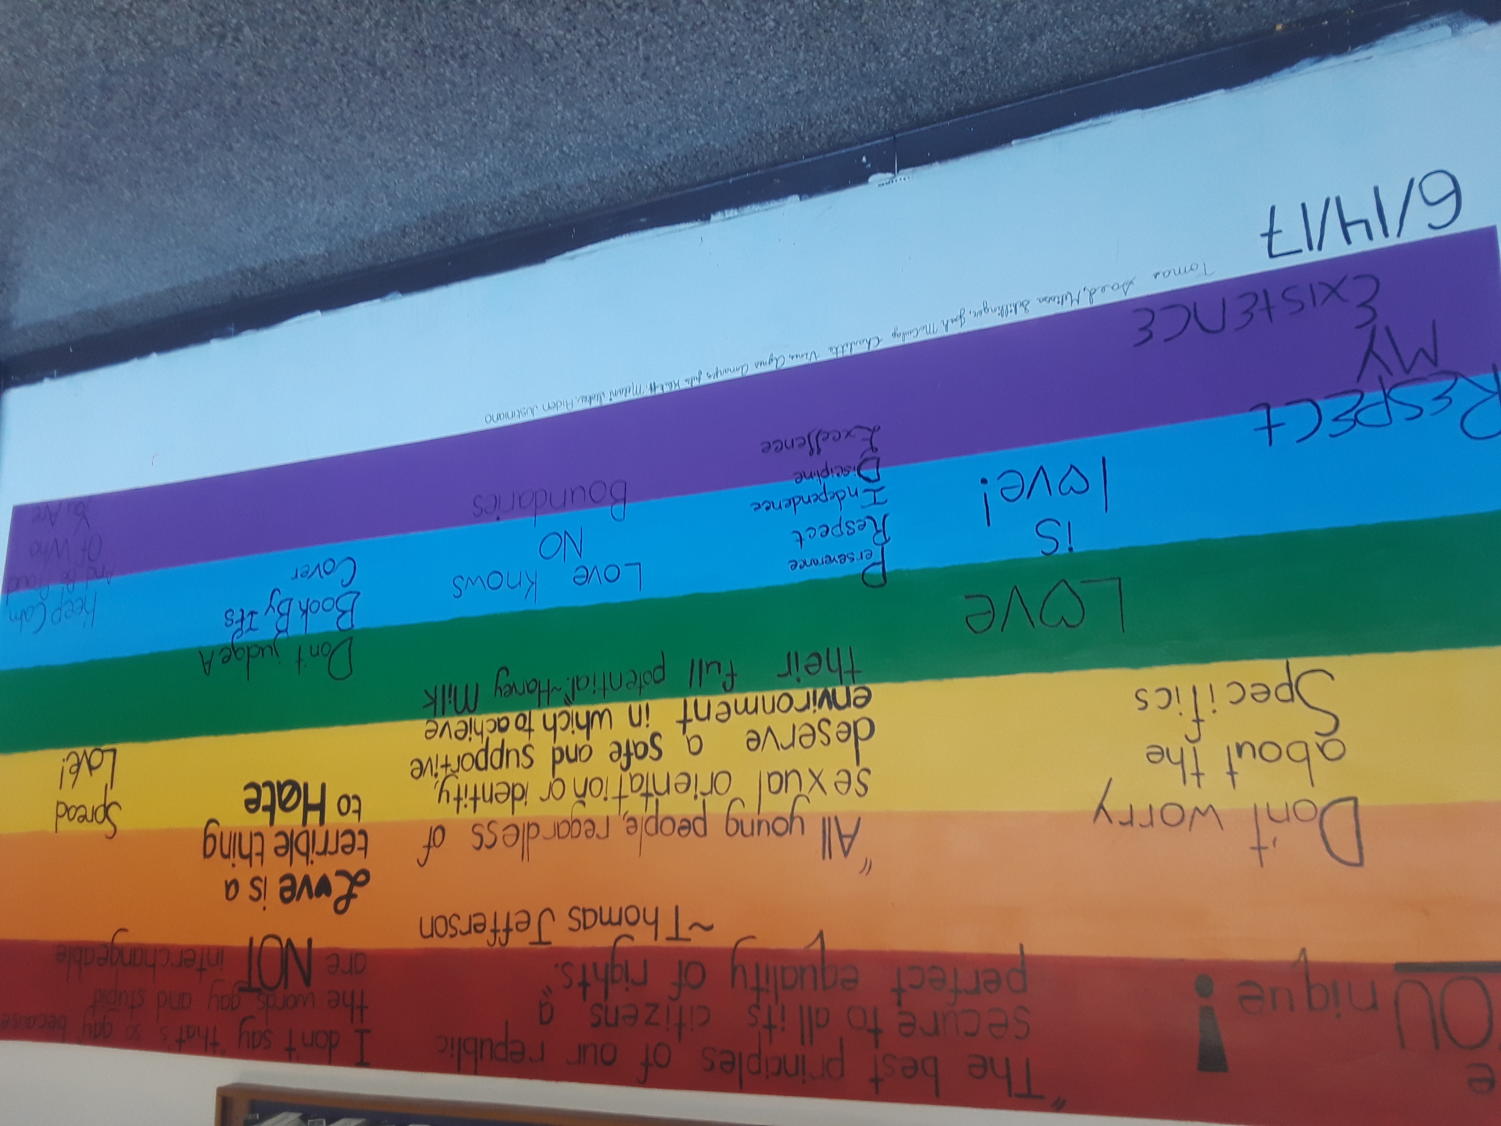 "The best principles of our republic
secure to all its citizens a
perfect equality of rights."
~Thomas Jefferson
I don't say "that's so gay" because
the words gay and stupid
are NOT interchangeable
e
YOUnique!
"All young people, regardless of
sexual orientation or identity,
deserve a safe and supportive
environment in which to achieve
their full potential."~Harvey Milk
Love is a
terrible thing
to Hate
Spread
Love!
Don't worry
about the
Specifics
Love
is
love!
Perseverance
Respect
Independence
Discipline
Excellence
Love knows
NO
Boundaries
Don't judge A
Book By It's
Cover
Keep Calm
And Be Proud
Of Who
You Are
RESPECT
MY
EXISTENCE
6/14/17
Tomas
Aiden Justiniano